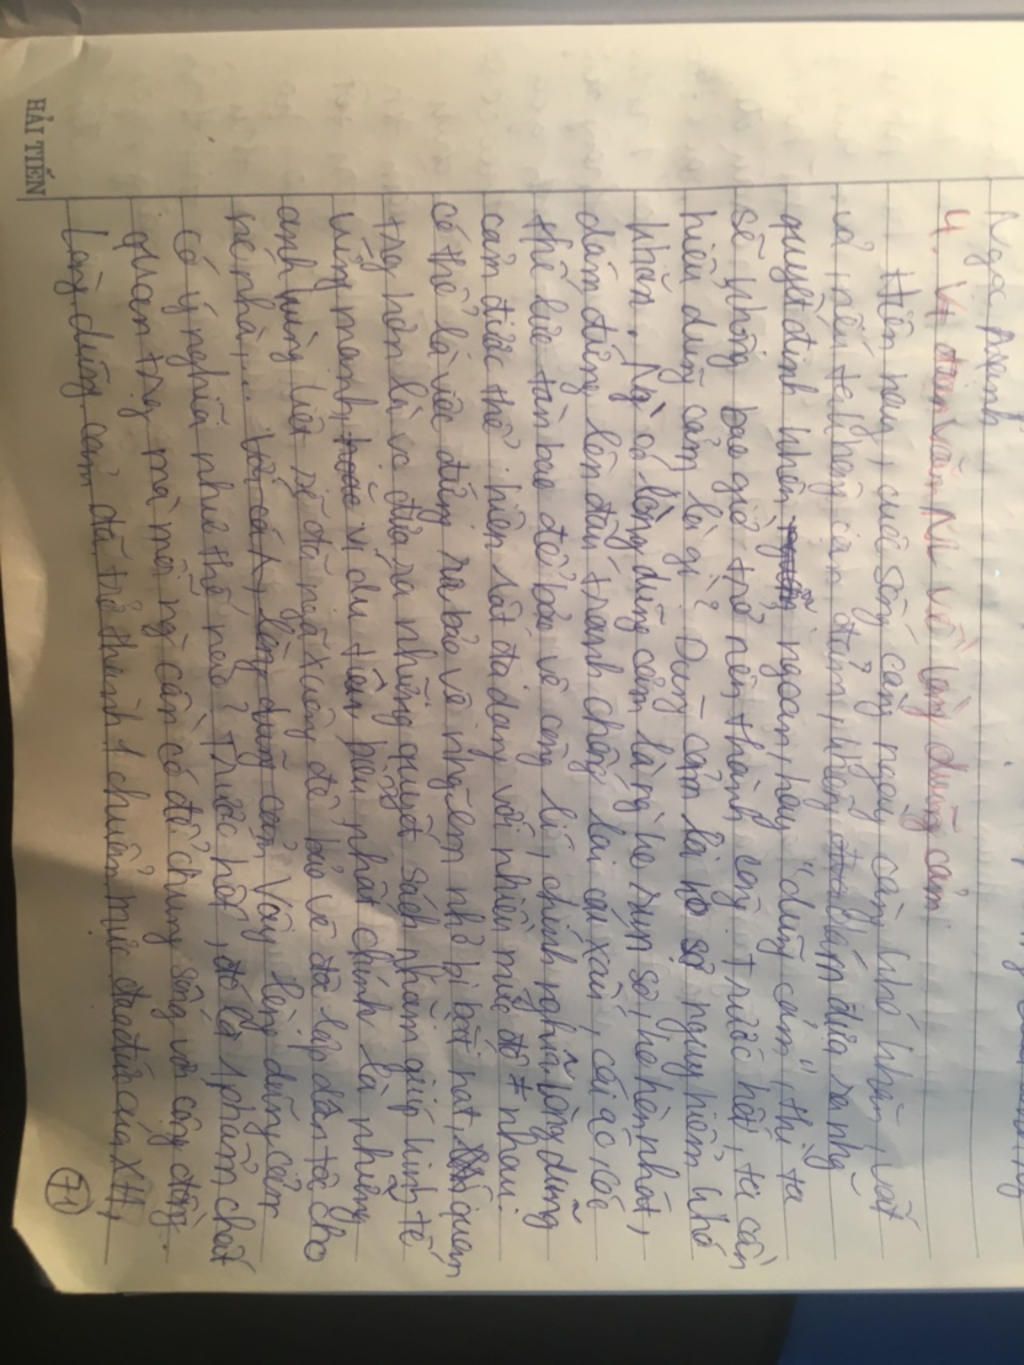 Ngọc Mạnh
4. Vt đoạn văn NL về lòng dũng cảm
Hiện nay, cuộc sống càng ngày càng khó khăn, vất
vả, nếu ta không can đảm, không dám đưa ra nhg
quyết định khôn ngoan, hay "dũng cảm", thì ta
sẽ không bao giờ trở nên thành công. Trước hết, ta cần
hiểu dũng cảm là gì? Dũng cảm là ko sợ nguy hiểm khó
khăn. Ng có lòng dũng cảm là ng ko run sợ, ko hèn nhát,
dám đứng lên đấu tranh chống lại cái xấu, cái ác, các
thế lực tàn bạo để bảo vệ công lí, chính nghĩa. Lòng dũng
cảm được thể hiện rất đa dạng với nhiều mức độ ≠ nhau:
có thể là việc đứng ra bảo vệ nhg em nhỏ bị bắt nạt, quan
trọng hơn là vc đưa ra những quyết sách nhằm giúp kinh tế
vững mạnh, ví dụ tiêu biểu nhất chính là những
anh hùng liệt sĩ đã ngã xuống để bảo vệ độc lập dân tộc cho
nc nhà,... Vậy lòng dũng cảm
có ý nghĩa như thế nào? Trước hết, đó là 1 phẩm chất
quan trọng mà mỗi ng cần có để chung sống với cộng đồng.
Lòng dũng cảm đã trở thành 1 chuẩn mực đạo đức của XH,
71
HẢI TIẾN